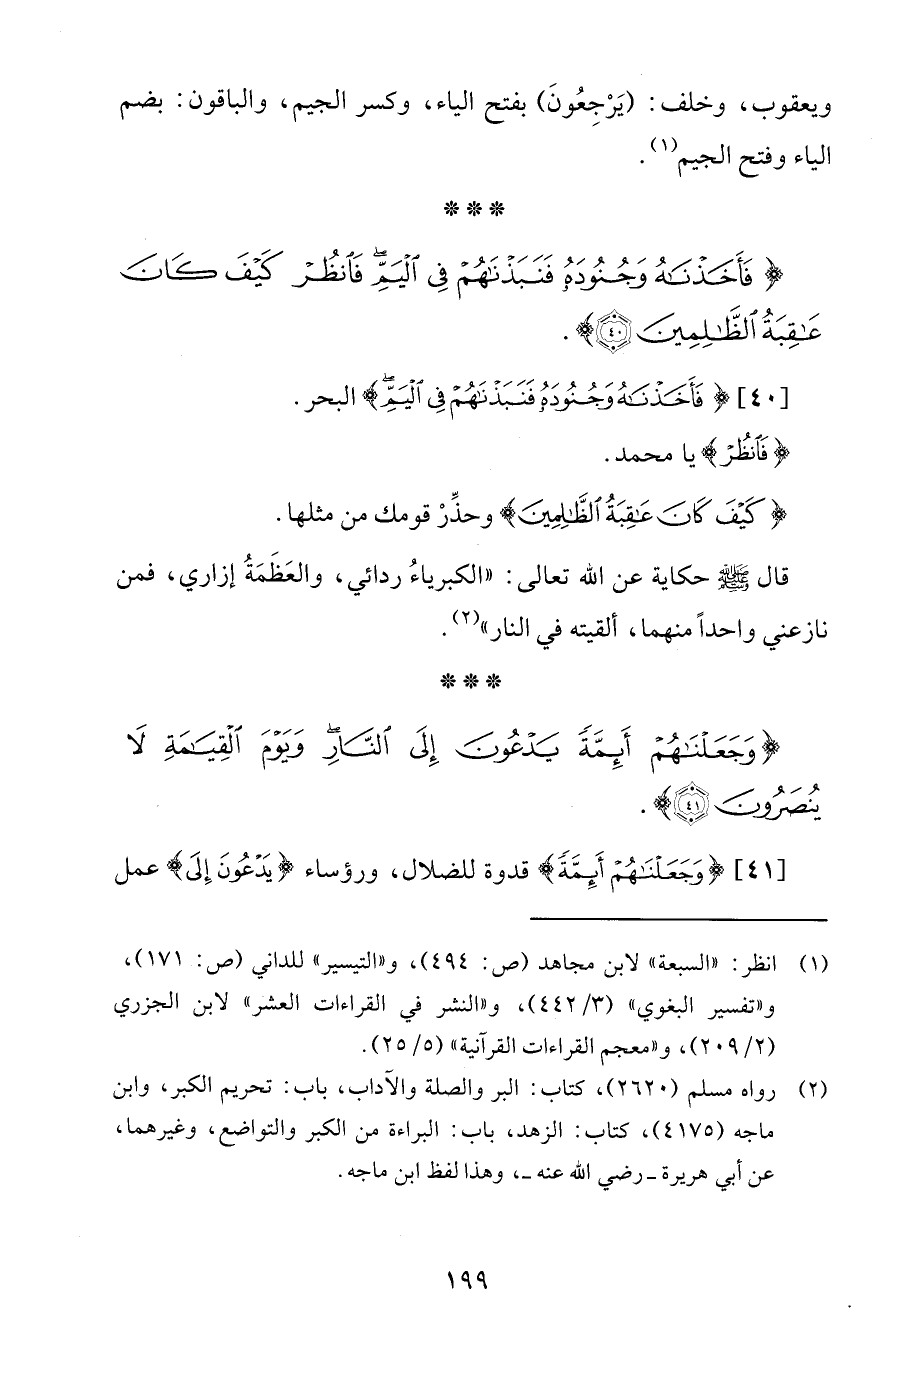 ويعقوب، وخلف: (يَرْجِعُونَ) بفتح الياء، وكسر الجيم، والباقون: بضم
الياء وفتح الجيم(١).
***
﴿ فَأَخَذْنَٰهُ وَجُنُودَهُۥ فَنَبَذْنَٰهُمْ فِى ٱلْيَمِّ ۖ فَٱنظُرْ كَيْفَ كَانَ
عَٰقِبَةُ ٱلظَّٰلِمِينَ ٤٠﴾.
[٤٠] ﴿ فَأَخَذْنَٰهُ وَجُنُودَهُۥ فَنَبَذْنَٰهُمْ فِى ٱلْيَمِّ ۖ﴾ البحر.
﴿ فَٱنظُرْ﴾ يا محمد.
﴿ كَيْفَ كَانَ عَٰقِبَةُ ٱلظَّٰلِمِينَ﴾ وحذِّرْ قومك من مثلها.
قال ﷺ حكاية عن الله تعالى: «الكبرياءُ ردائي، والعَظَمَةُ إزاري، فمن
نازعني واحداً منهما، ألقيته في النار»(٢).
***
﴿وَجَعَلْنَٰهُمْ أَئِمَّةً يَدْعُونَ إِلَى ٱلنَّارِ ۖ وَيَوْمَ ٱلْقِيَٰمَةِ لَا
يُنصَرُونَ ٤١﴾.
[٤١] ﴿وَجَعَلْنَٰهُمْ أَئِمَّةً﴾ قدوة للضلال، ورؤساء ﴿يَدْعُونَ إِلَى﴾ عمل
(١) انظر: «السبعة» لابن مجاهد (ص: ٤٩٤)، و«التيسير» للداني (ص: ١٧١)،
و«تفسير البغوي» (٣/ ٤٤٢)، و«النشر في القراءات العشر» لابن الجزري
(٢/ ٢٠٩)، و«معجم القراءات القرآنية» (٥/ ٢٥).
(٢) رواه مسلم (٢٦٢٠)، كتاب: البر والصلة والآداب، باب: تحريم الكبر، وابن
ماجه (٤١٧٥)، كتاب: الزهد، باب: البراءة من الكبر والتواضع، وغيرهما،
عن أبي هريرة ـ رضي الله عنه ـ، وهذا لفظ ابن ماجه.
١٩٩